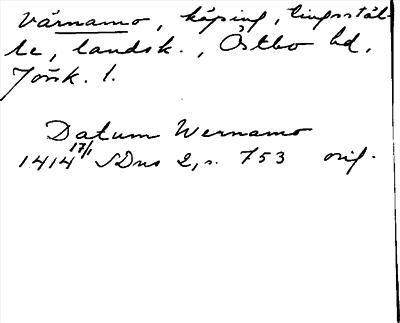 Värnamo, köping, tingsstäl-
le, landsk., Östbo hd,
Jönk. l.
Datum Wernamo
1414 17/1 SDns 2, s. 753 orig.